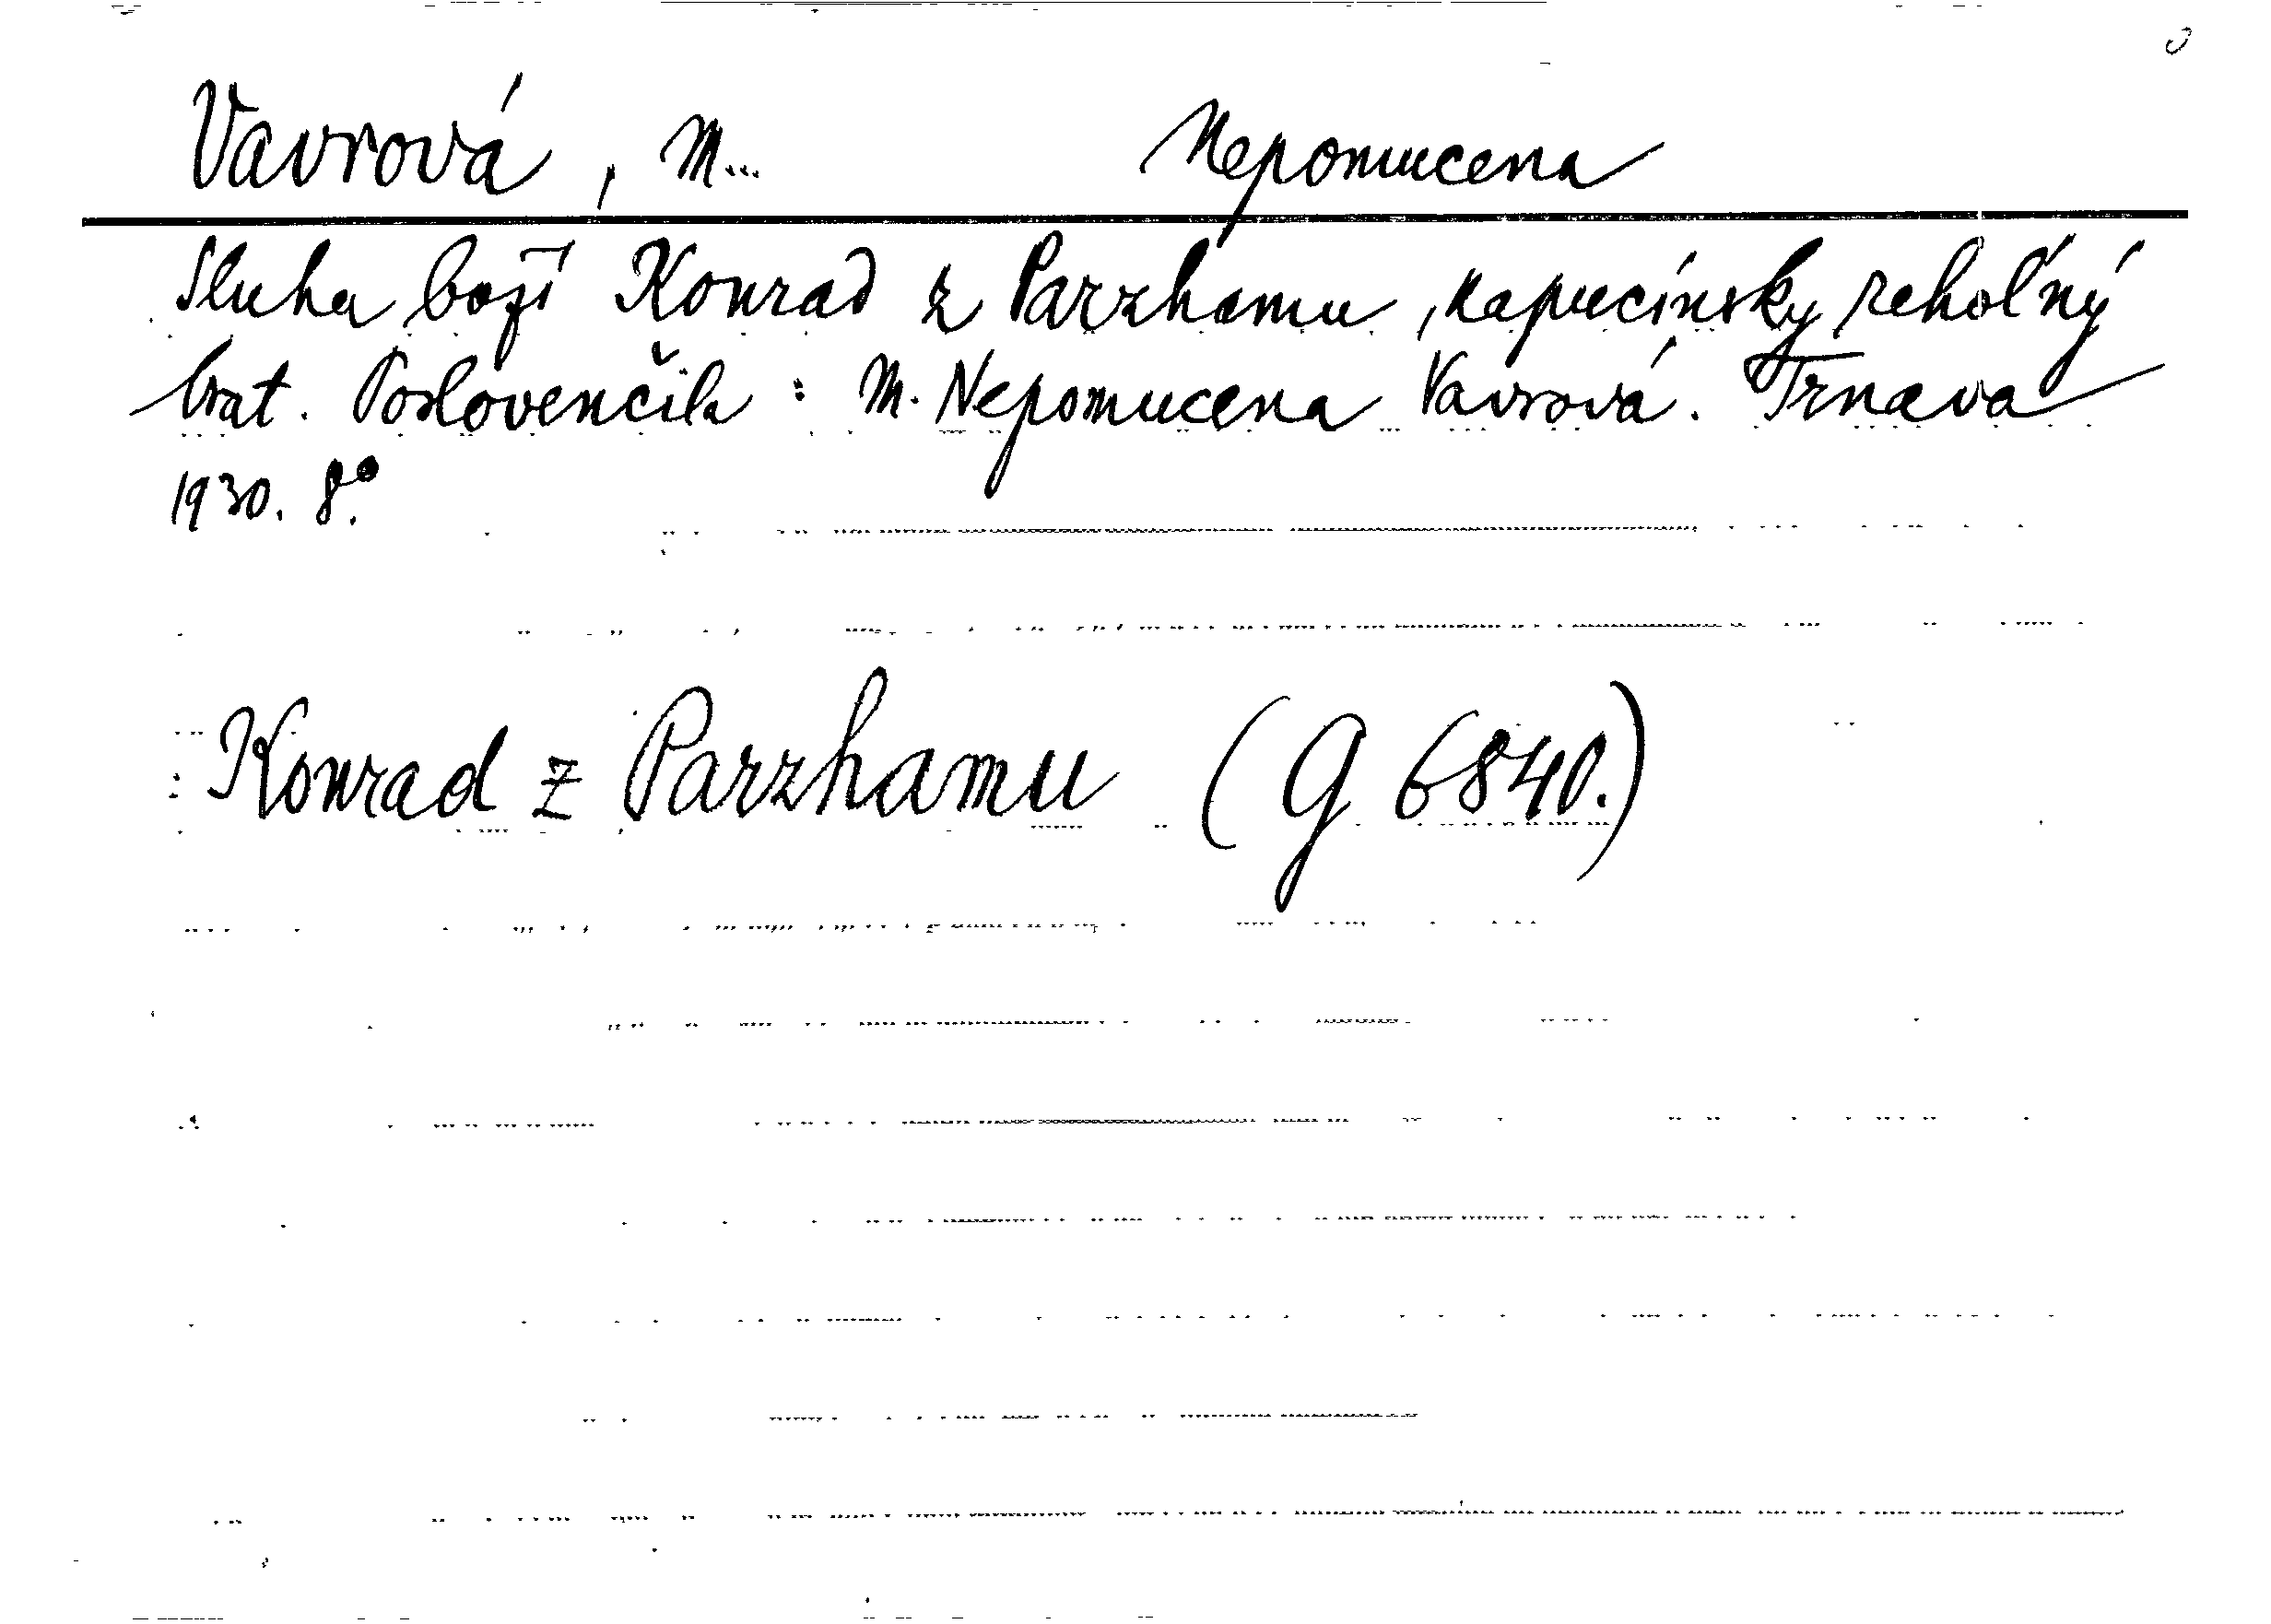 Vavrová, M... Nepomucena
Sluha boží Konrad z Parzhamu, kapucínsky rehoľný
brat. Poslovenčila: M. Nepomucena Vavrová. Trnava
1930. 8°.
Konrad z Parzhamu (G 6840.)